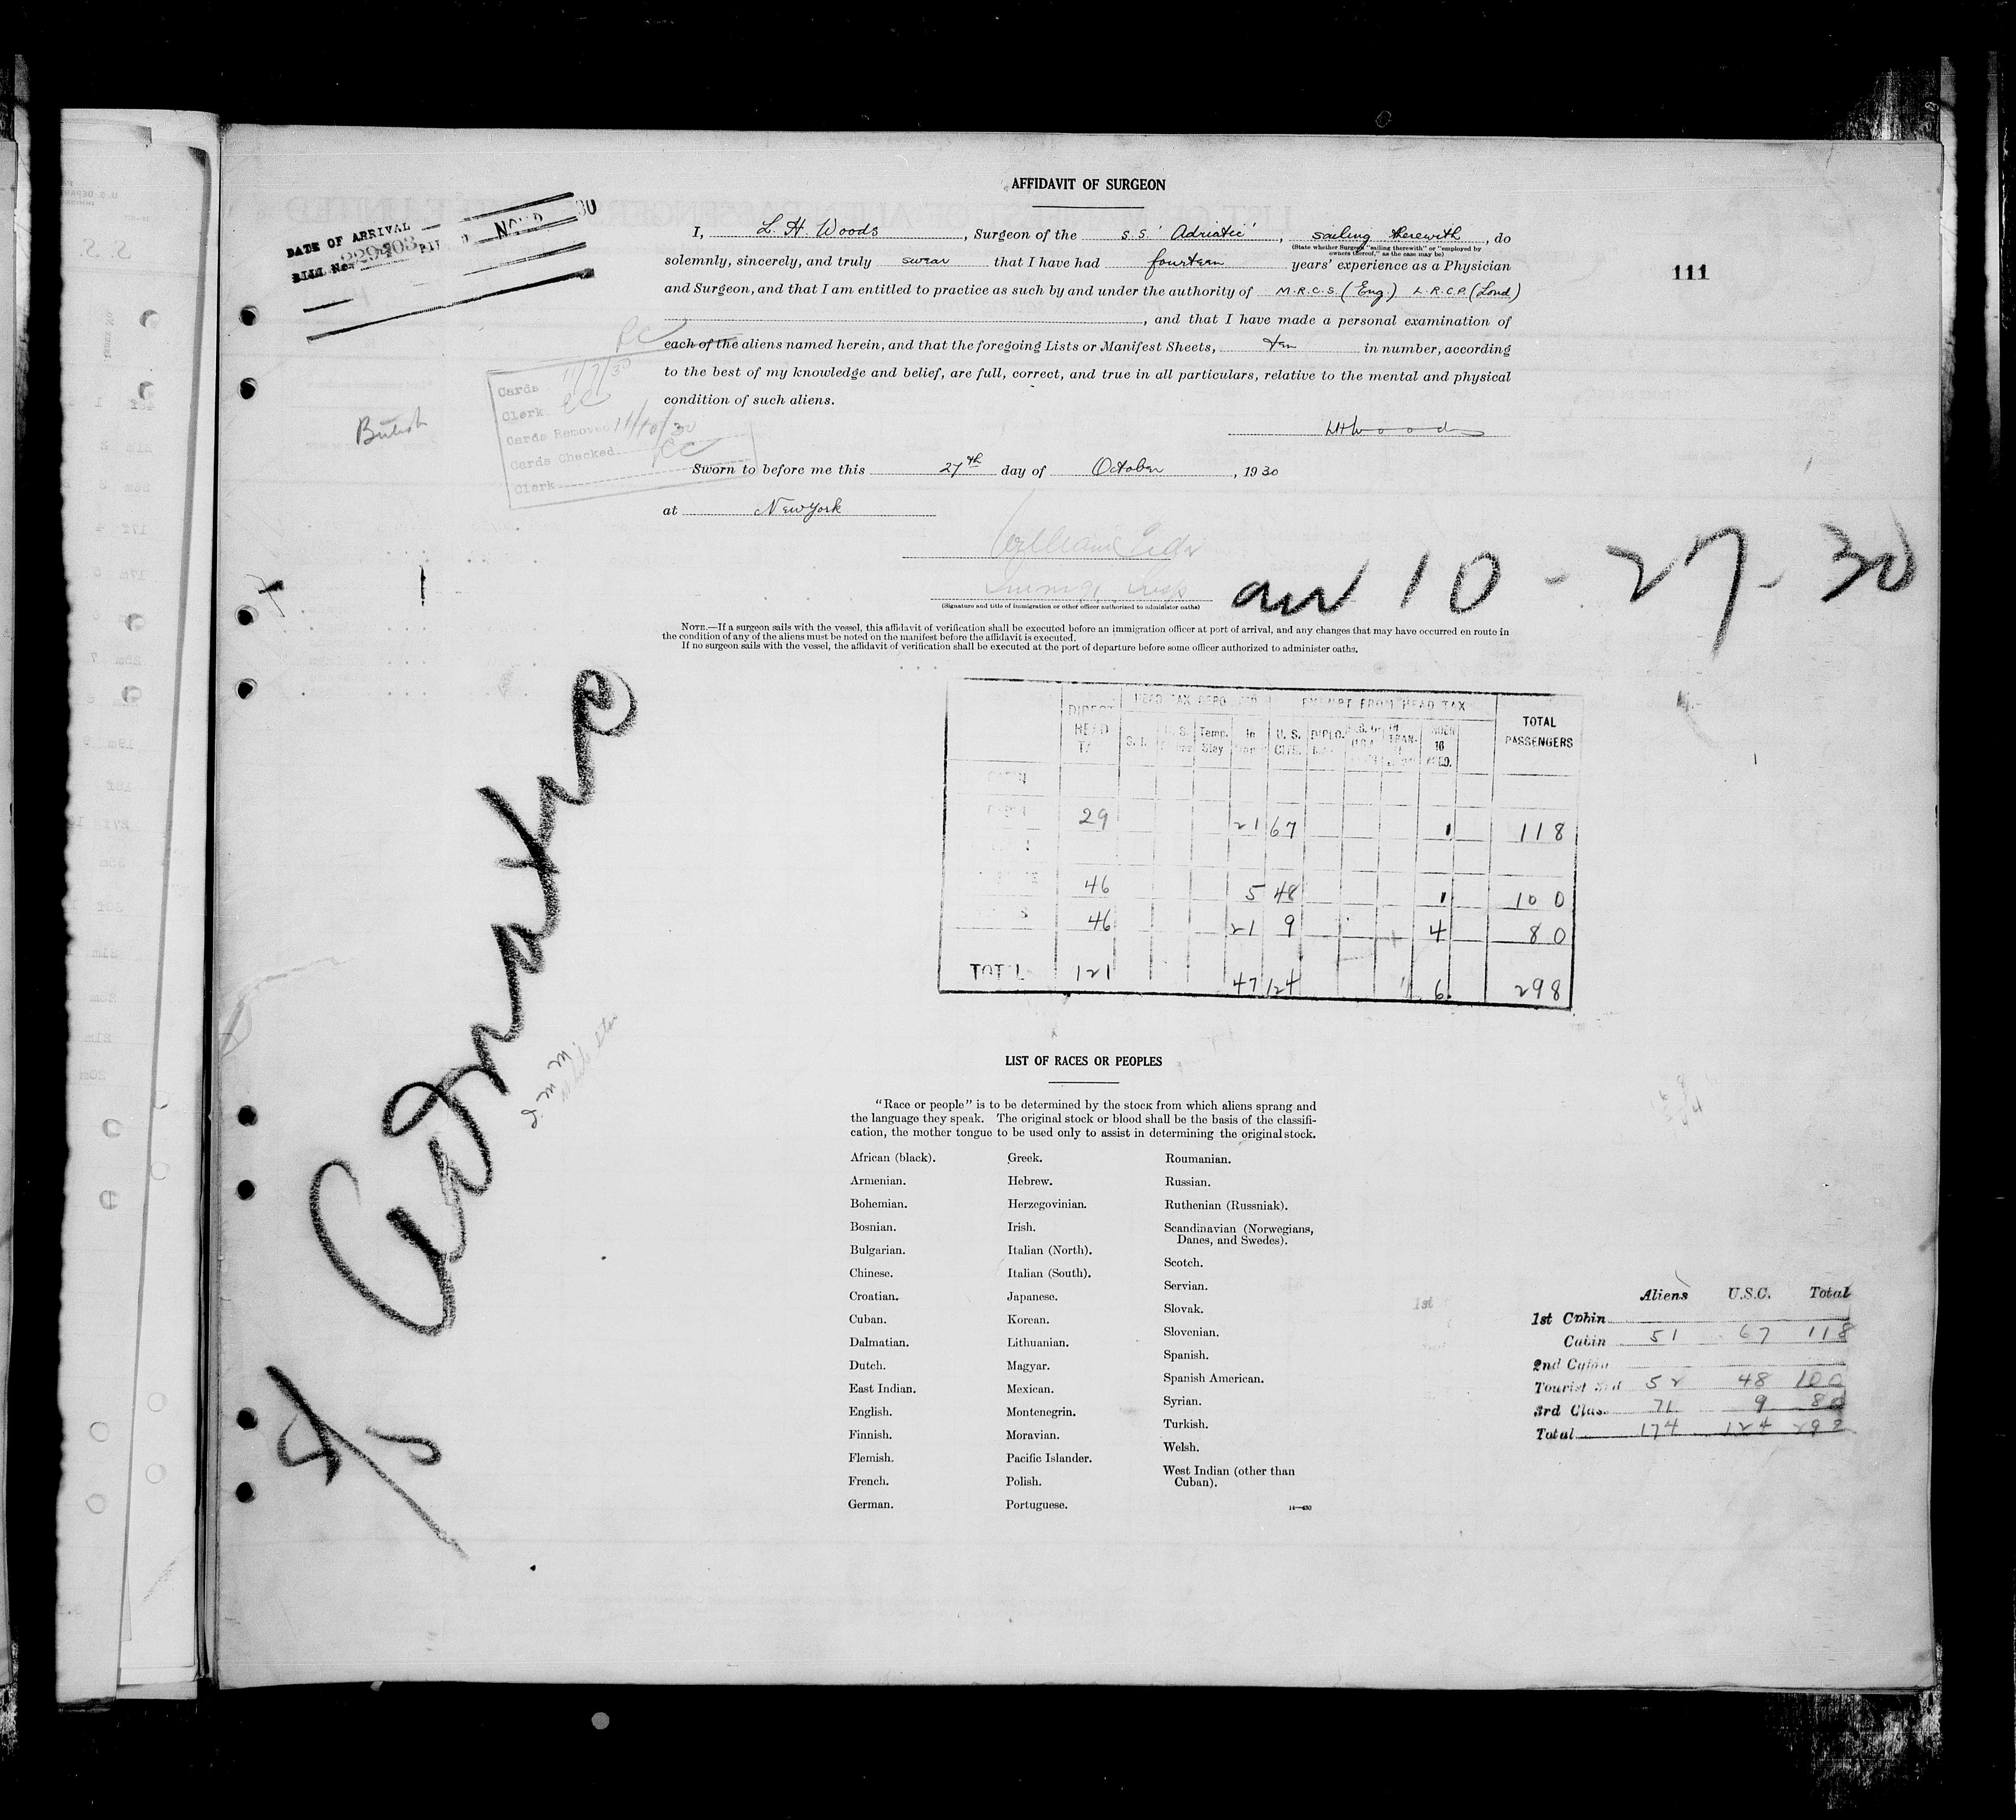 AFFIDAVIT OF SURGEON
DATE OF ARRIVAL
BILL No.
111
I, L. H. Woods, Surgeon of the S.S. 'Adriatic', sailing therewith, do
(State whether Surgeon "sailing therewith" or "employed by
owners thereof," as the case may be)
solemnly, sincerely, and truly swear that I have had fourteen years' experience as a Physician
and Surgeon, and that I am entitled to practice as such by and under the authority of M.R.C.S. (Eng.) L.R.C.P. (Lond)
, and that I have made a personal examination of
each of the aliens named herein, and that the foregoing Lists or Manifest Sheets, ten in number, according
to the best of my knowledge and belief, are full, correct, and true in all particulars, relative to the mental and physical
condition of such aliens.
LHWoods
British
Cards 11/7/30
Clerk
Cards Removed 11/10/30
Cards Checked
Clerk
Sworn to before me this 27th day of October, 1930
at New York
(Signature and title of immigration or other officer authorized to administer oaths)
arr 10-27-30
NOTE.—If a surgeon sails with the vessel, this affidavit of verification shall be executed before an immigration officer at port of arrival, and any changes that may have occurred en route in
the condition of any of the aliens must be noted on the manifest before the affidavit is executed.
If no surgeon sails with the vessel, the affidavit of verification shall be executed at the port of departure before some officer authorized to administer oaths.
S/S Adriatic
I.M.M.
White Star
DIRECT HEAD TAX
EXEMPT FROM HEAD TAX
Temp. Stay
U. S. CITS.
TOTAL PASSENGERS
29 21 67 1 118
46 5 48 1 100
46 21 9 4 80
TOTAL 121 47 124 6 298
LIST OF RACES OR PEOPLES
"Race or people" is to be determined by the stock from which aliens sprang and
the language they speak. The original stock or blood shall be the basis of the classifi-
cation, the mother tongue to be used only to assist in determining the original stock.
African (black).
Armenian.
Bohemian.
Bosnian.
Bulgarian.
Chinese.
Croatian.
Cuban.
Dalmatian.
Dutch.
East Indian.
English.
Finnish.
Flemish.
French.
German.
Greek.
Hebrew.
Herzegovinian.
Irish.
Italian (North).
Italian (South).
Japanese.
Korean.
Lithuanian.
Magyar.
Mexican.
Montenegrin.
Moravian.
Pacific Islander.
Polish.
Portuguese.
Roumanian.
Russian.
Ruthenian (Russniak).
Scandinavian (Norwegians,
Danes, and Swedes).
Scotch.
Servian.
Slovak.
Slovenian.
Spanish.
Spanish American.
Syrian.
Turkish.
Welsh.
West Indian (other than
Cuban).
14—430
1st
Aliens U.S.C. Total
1st Cabin
Cabin 51 67 118
2nd Cabin
Tourist 3rd 52 48 100
3rd Class 71 9 80
Total 174 124 298